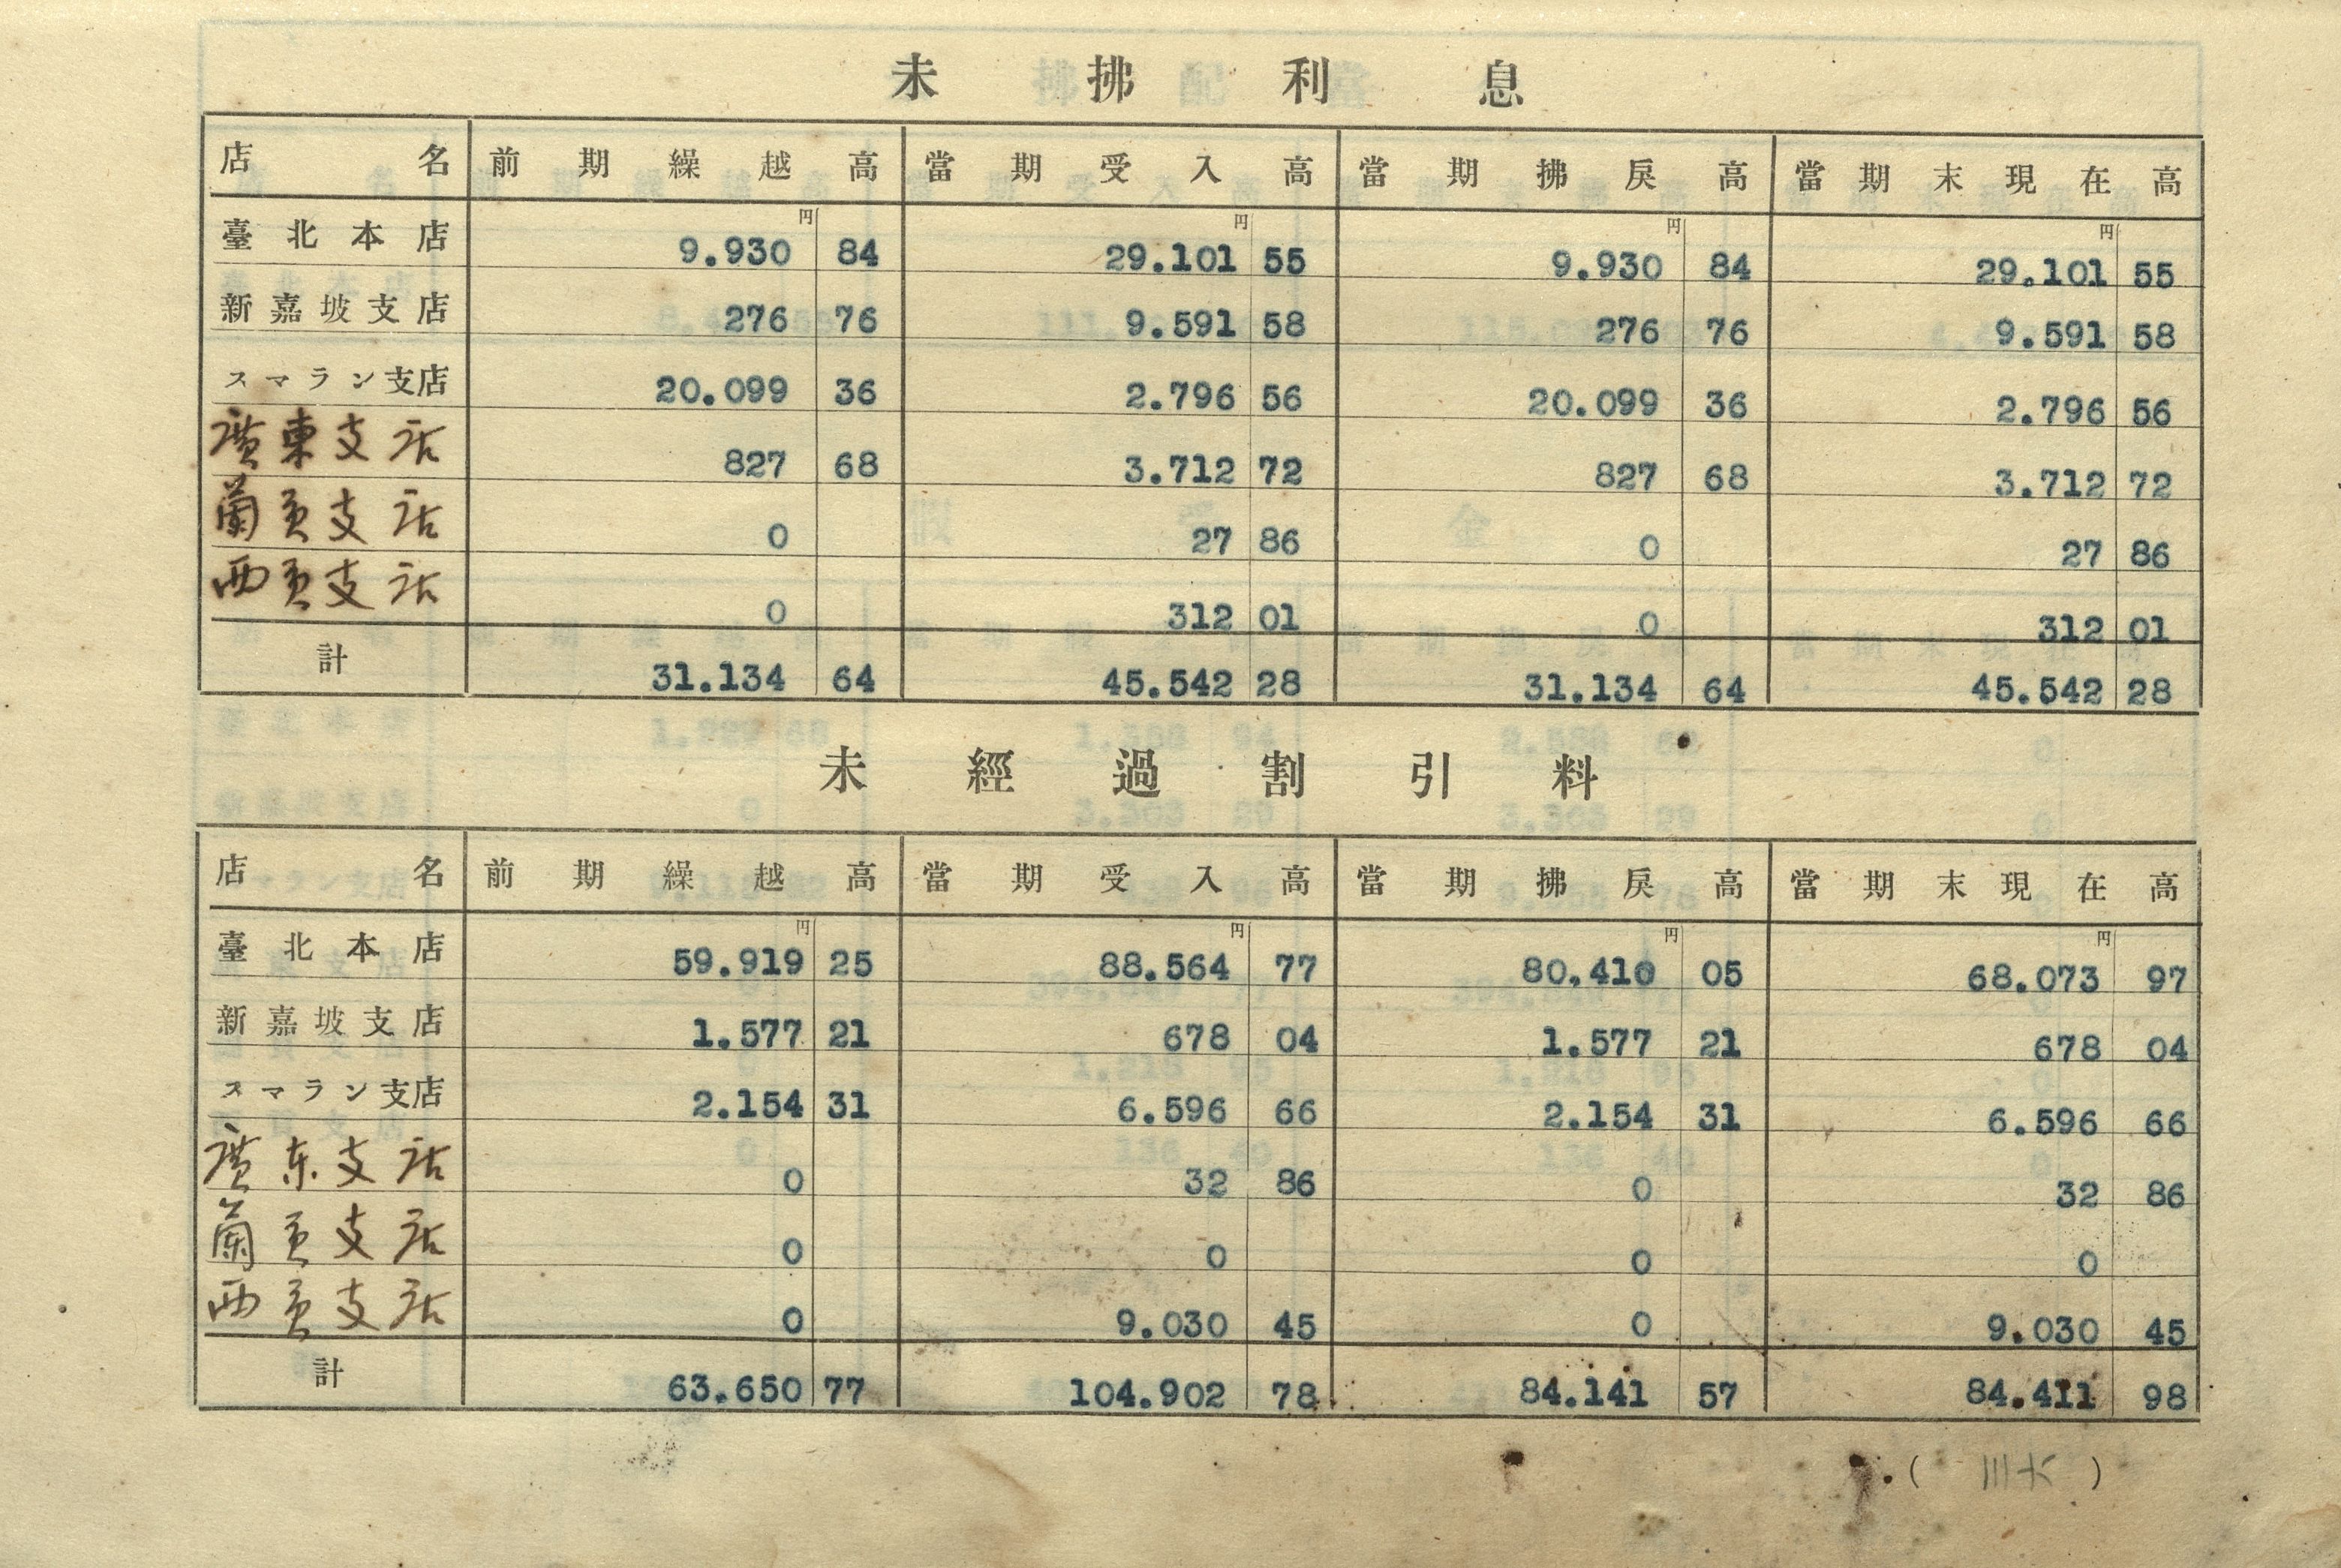 未拂利息
店名 前期繰越高 當期受入高 當期拂戻高 當期末現在高
円 円 円 円
臺北本店 9.930 84 29.101 55 9.930 84 29.101 55
新嘉坡支店 276 76 9.591 58 276 76 9.591 58
スマラン支店 20.099 36 2.796 56 20.099 36 2.796 56
廣東支店 827 68 3.712 72 827 68 3.712 72
蘭貢支店 0 27 86 0 27 86
西貢支店 0 312 01 0 312 01
計 31.134 64 45.542 28 31.134 64 45.542 28
未經過割引料
店名 前期繰越高 當期受入高 當期拂戻高 當期末現在高
円 円 円 円
臺北本店 59.919 25 88.564 77 80.410 05 68.073 97
新嘉坡支店 1.577 21 678 04 1.577 21 678 04
スマラン支店 2.154 31 6.596 66 2.154 31 6.596 66
廣东支店 0 32 86 0 32 86
蘭貢支店 0 0 0 0
西貢支店 0 9.030 45 0 9.030 45
計 63.650 77 104.902 78 84.141 57 84.411 98
(三六)